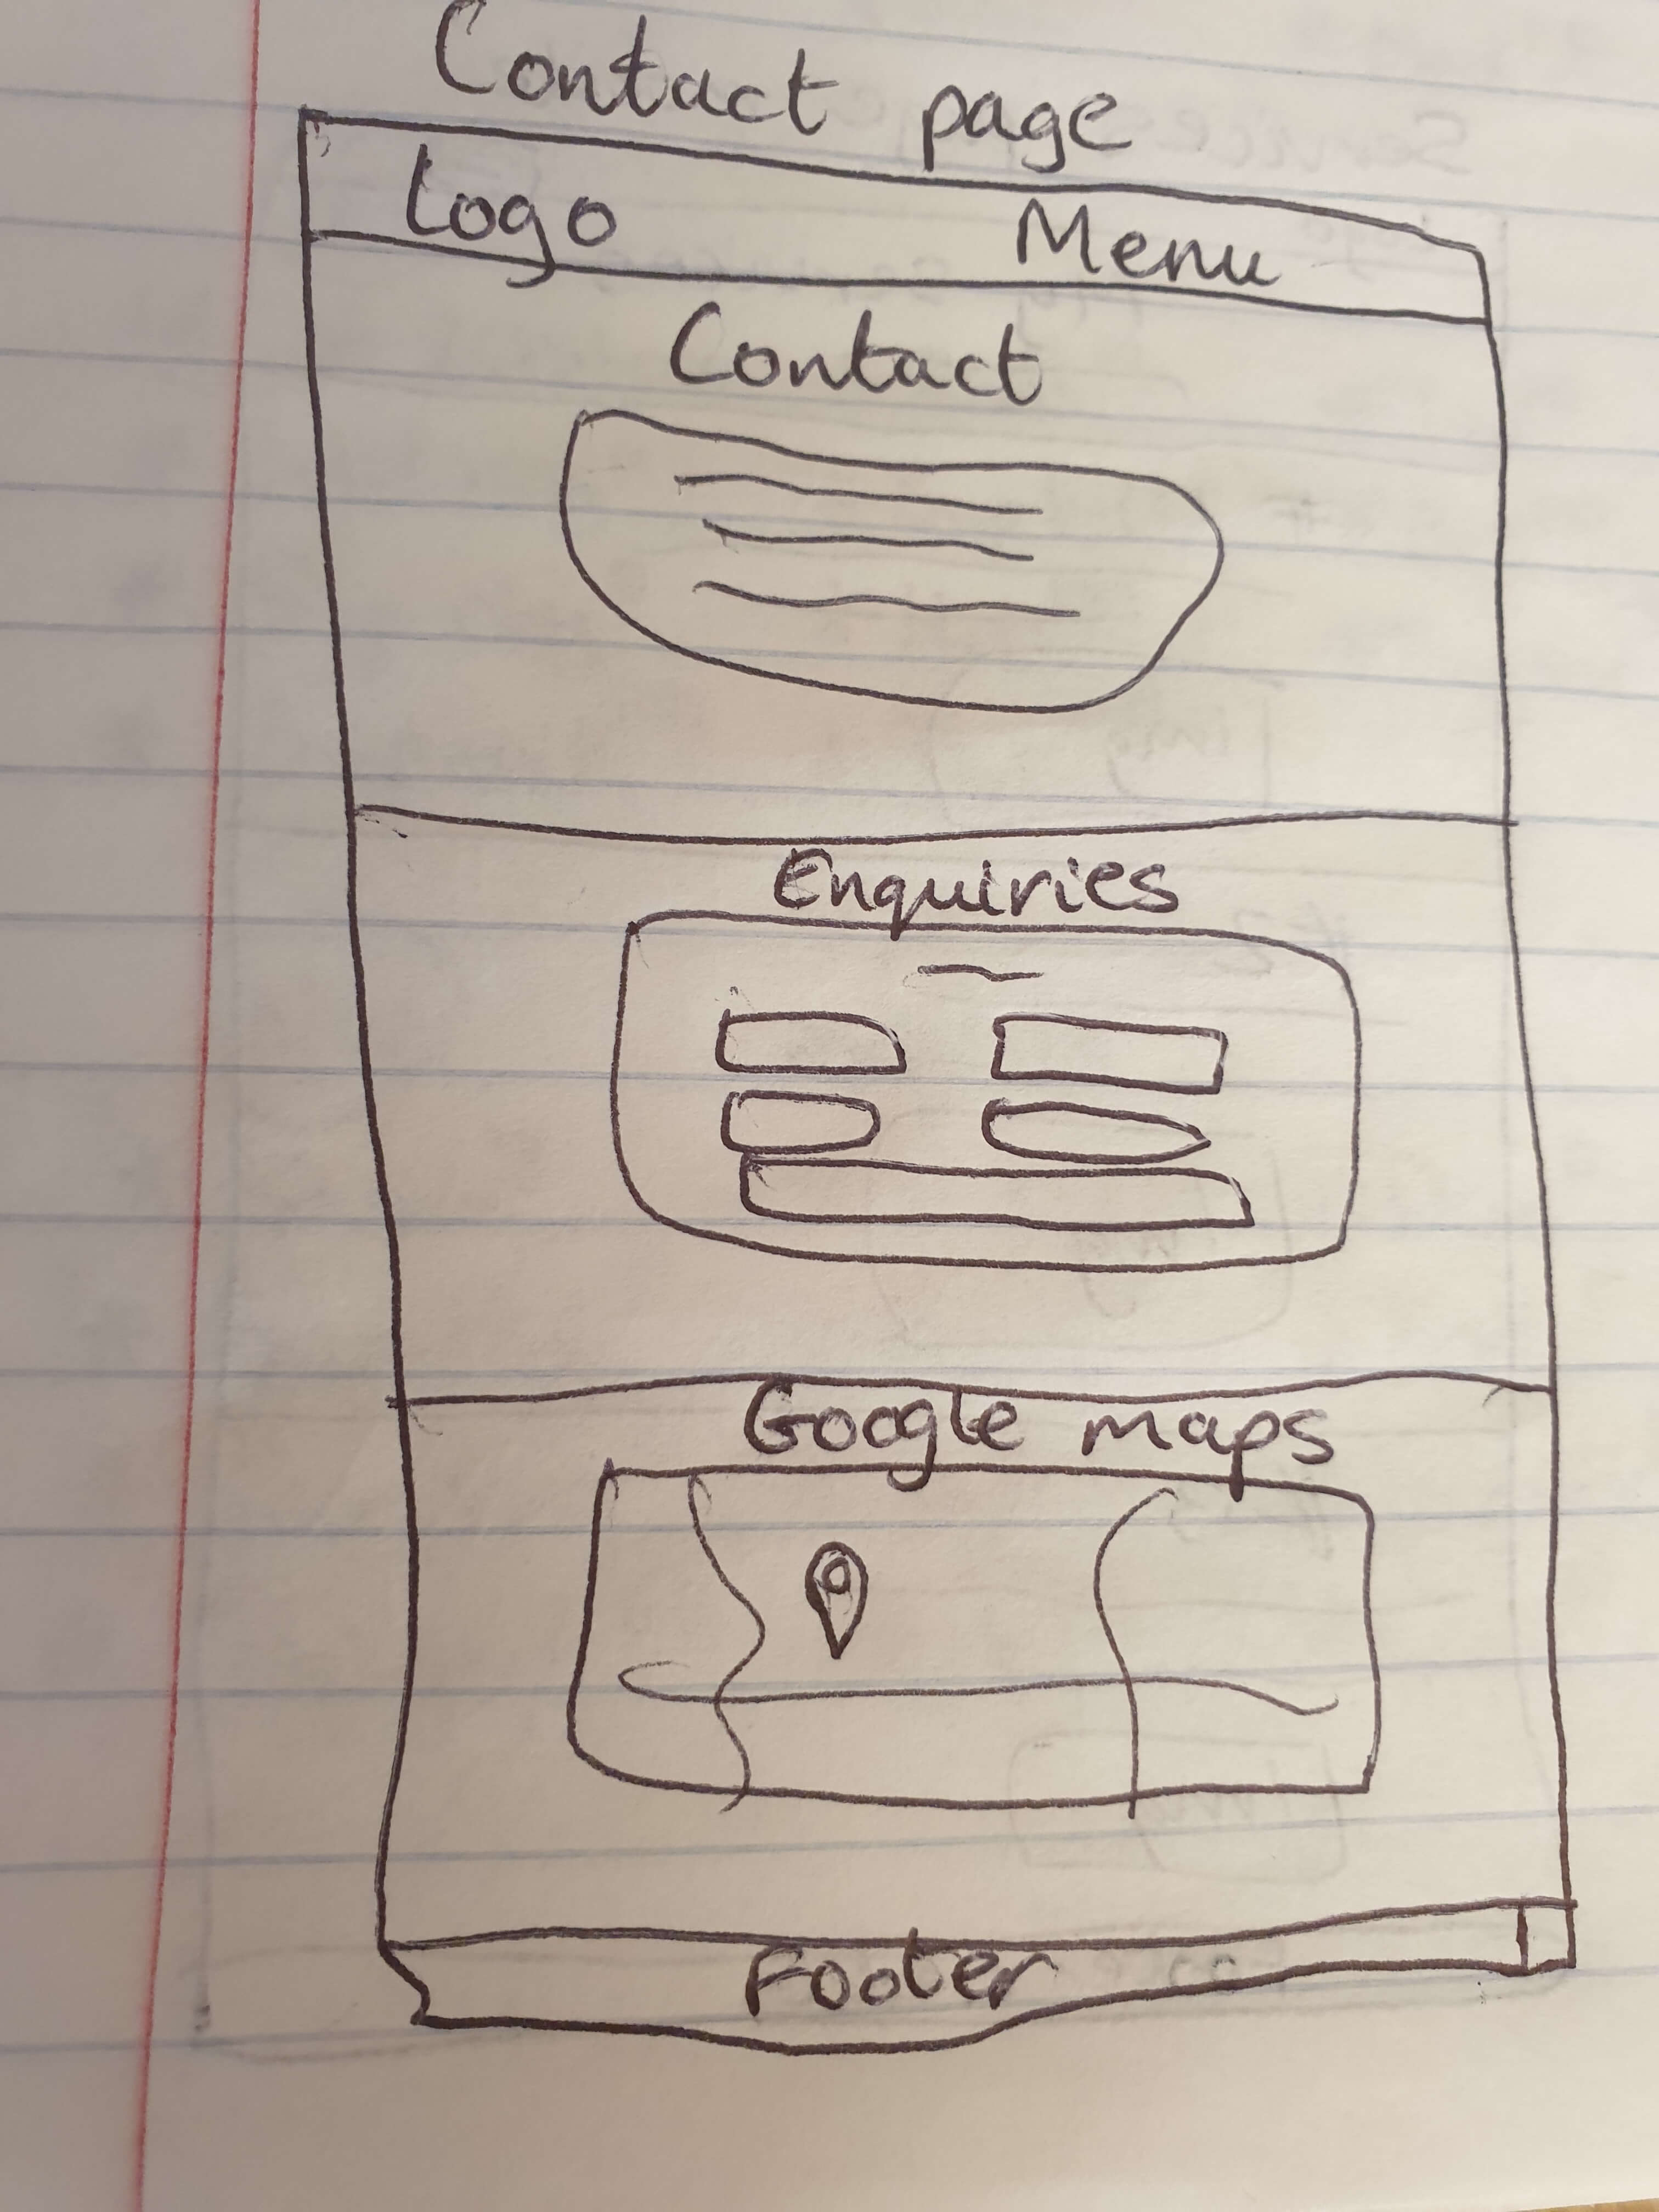 Contact page
Logo Menu
Contact
Enquiries
Google maps
Footer